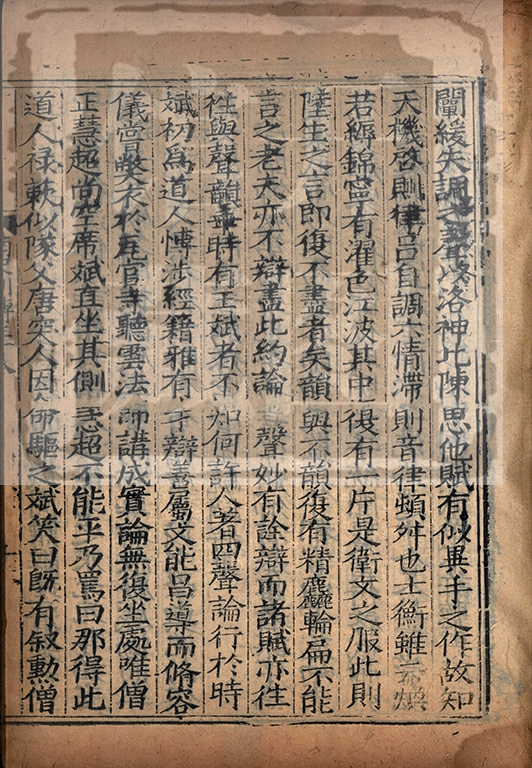 闡緩失調之聲以洛神比陳思他賦有似異手之作故知
天機啓則律呂自調六情滯則音律頓舛也士衡雖云煥
若縟錦寧有濯色江波其中復有一片是衛文之服此則
陸生之言即復不盡者矣韻與不韻復有精麤輪扁不能
言之老夫亦不辯盡此約論 聲妙有詮辯而諸賦亦往
往與聲韻乖時有王斌者不知何許人著四聲論行於時
斌初爲道人博涉經籍雅有才辯善屬文能昌導而脩容
儀嘗弊衣於瓦官寺聽雲法師講成實論無復坐處唯僧
正慧超尚空席斌直坐其側 超不能平乃罵曰那得此
道人祿蔌似隊父唐突人因命驅之斌笑曰旣有叙勳僧